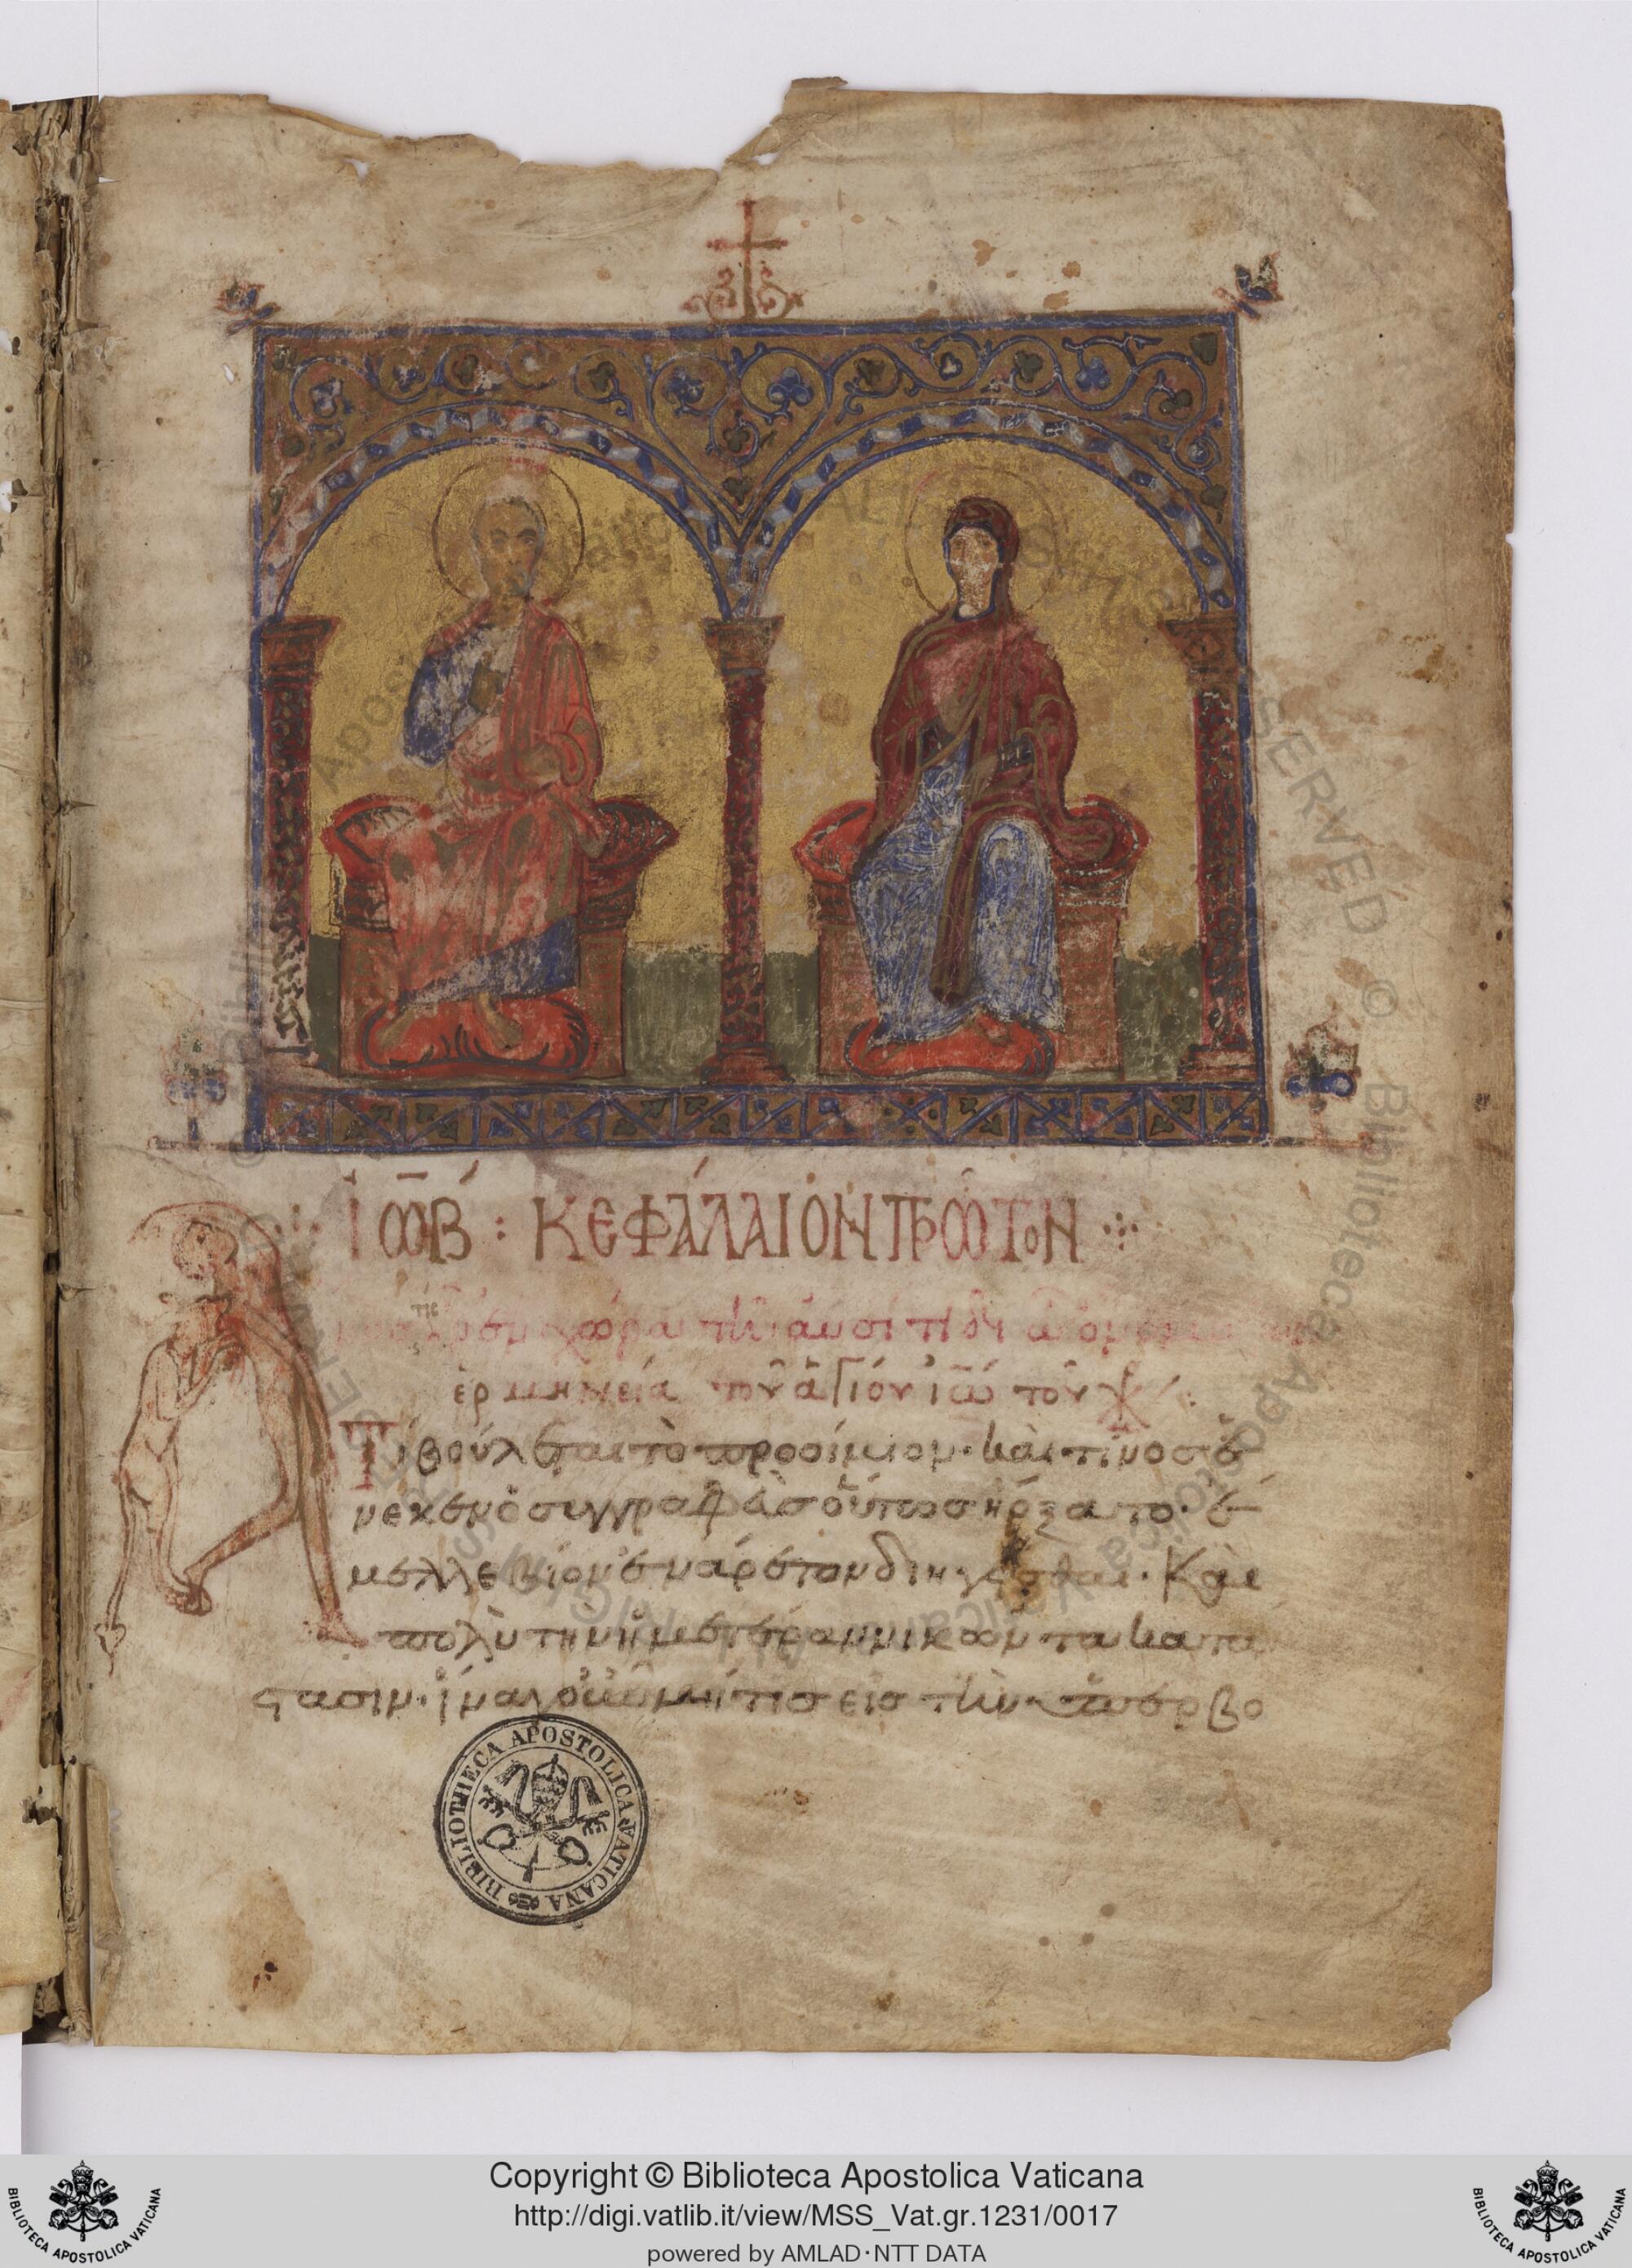 ἸΩ̄Β : ΚΕΦΆΛΑΙΟΝ ΠΡΩ͂ΤΟΝ
χώρα τῆ αὐσίτιδι ὧ ὄνομα
ἑρμηνεία τοῦ ἁγίου ἰω̄ τοῦ
Τί βούλεται τὸ προοίμιον· καὶ τίνος ἕ
νεκεν ὁ συγγραφεὺς οὕτως ἤρξατο·
μέλλει βίον ἐνάρετον διηγεῖσθαι· Καὶ
πολὺ τὴν ἡμετέραν νικῶντα κατα
στασιν· ἵνα οὖν μή τις εἰς τὴν ὑπερβο
BIBLIOTHECA APOSTOLICA VATICANA
Copyright © Biblioteca Apostolica Vaticana
http://digi.vatlib.it/view/MSS_Vat.gr.1231/0017
powered by AMLAD·NTT DATA
BIBLIOTECA APOSTOLICA VATICANA
BIBLIOTECA APOSTOLICA VATICANA